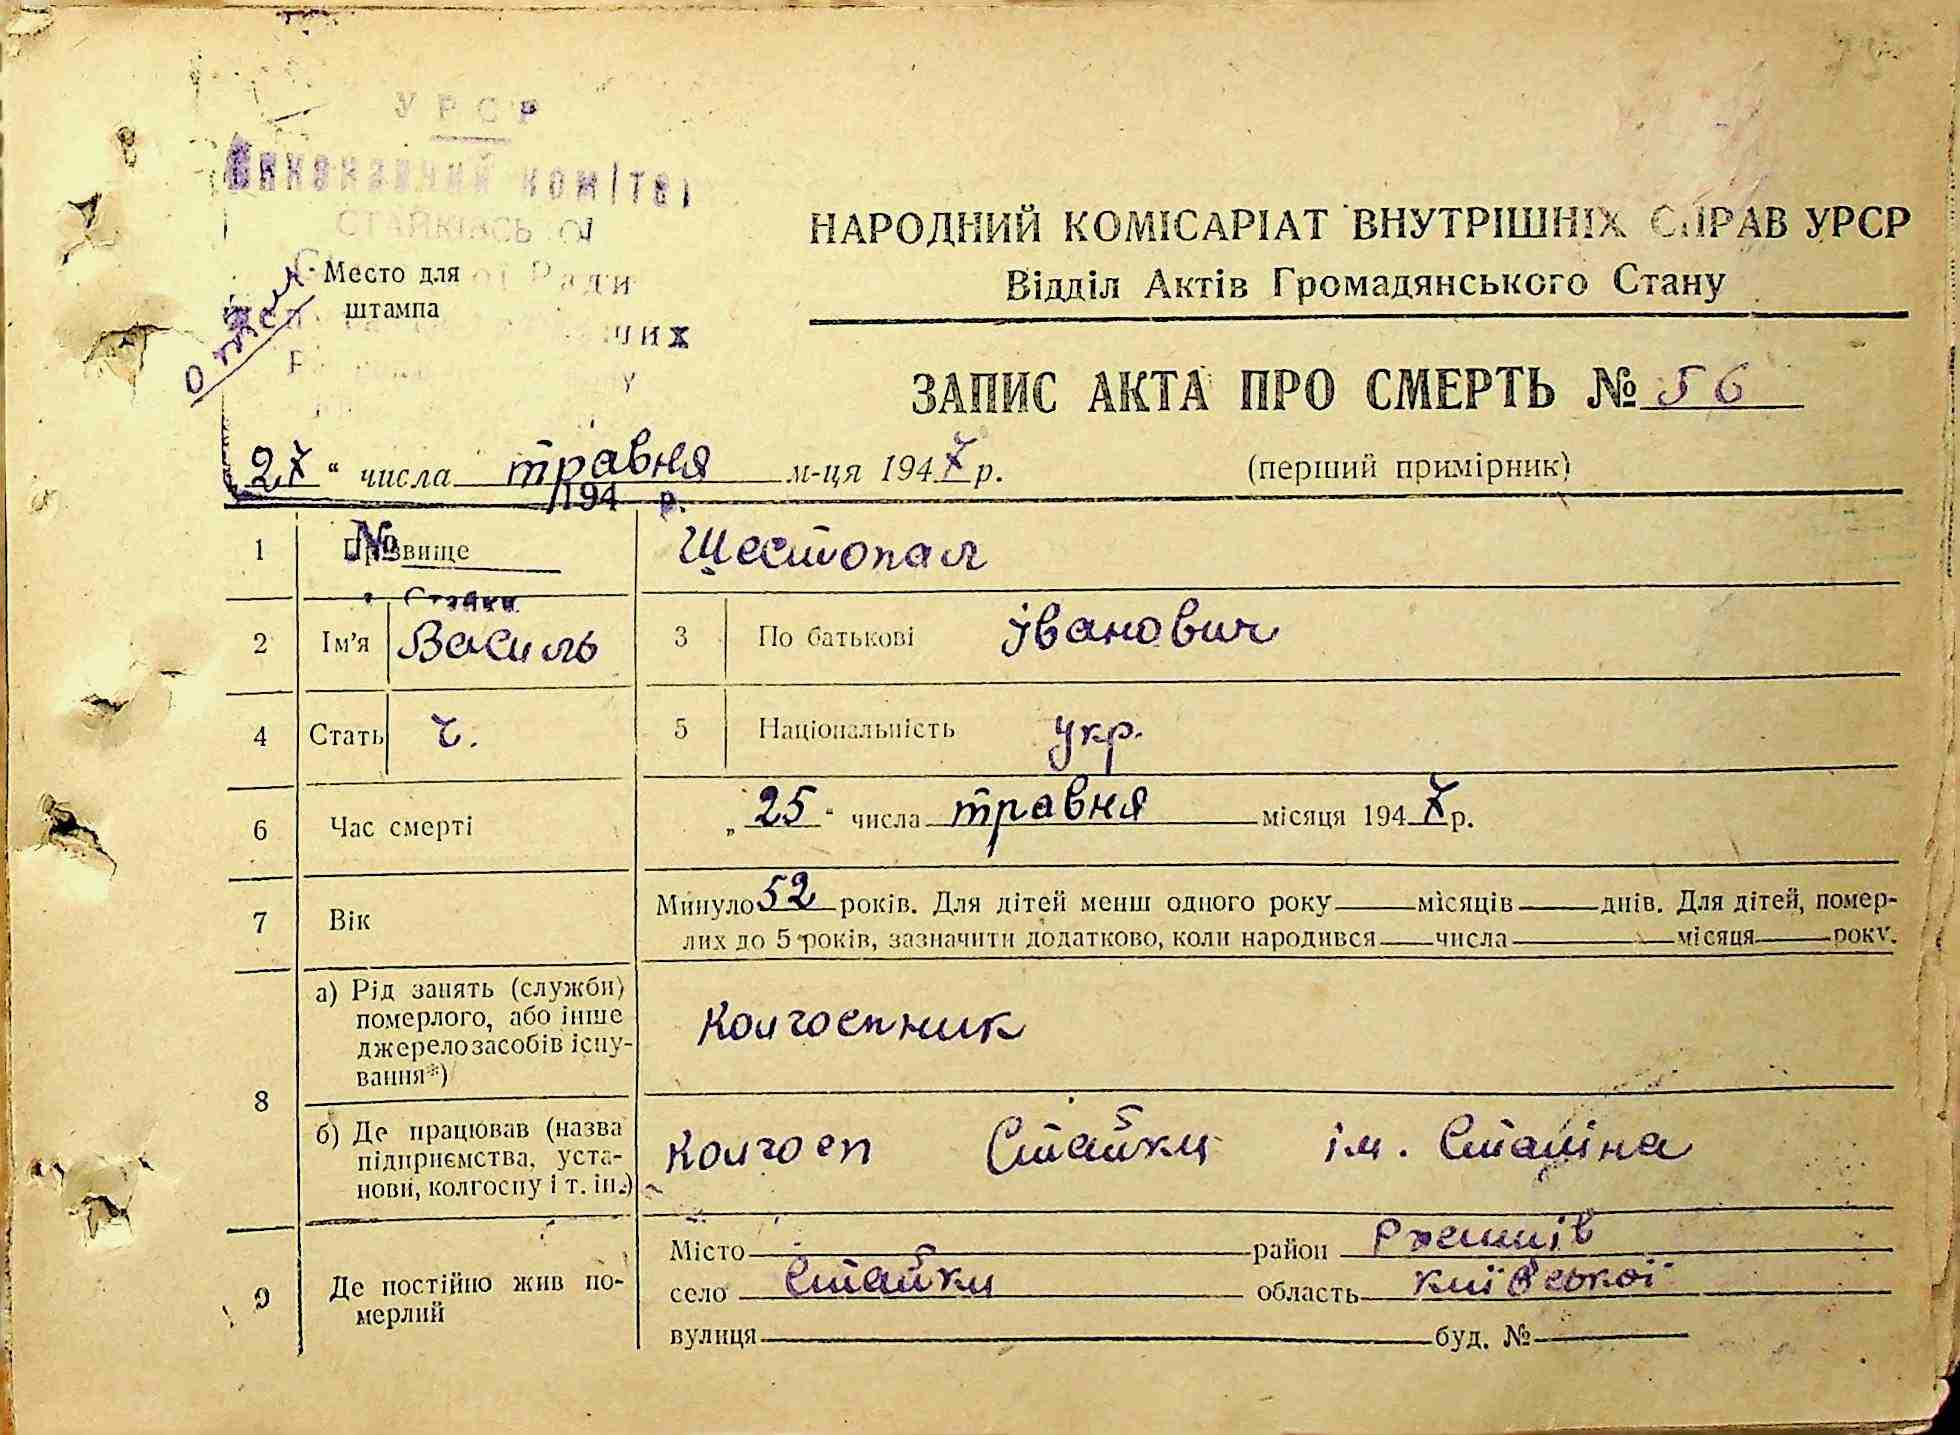 УРСР
Виконавчий комітет
СТАЙКІВСЬКОЇ
Ради
Место для
штампа
них
НАРОДНИЙ КОМІСАРІАТ ВНУТРІШНІХ СПРАВ УРСР
Відділ Актів Громадянського Стану
ЗАПИС АКТА ПРО СМЕРТЬ № 56
27 “ числа травня м-ця 1947 р.
(перший примірник)
194 р.
№
1 Прізвище Шестопал
Стайки
2 Ім'я Василь 3 По батькові Іванович
4 Стать ч. 5 Національність укр.
6 Час смерті „ 25 “ числа травня місяця 1947 р.
7 Вік Минуло 52 років. Для дітей менш одного року місяців днів. Для дітей, помер-
лих до 5 років, зазначити додатково, коли народився числа місяця року.
8 а) Рід занять (служби)
померлого, або інше
джерело засобів існу-
вання*)
колгоспник
б) Де працював (назва
підприємства, уста-
нови, колгоспу і т. ін.)
колгосп Стайки ім. Сталіна
9 Де постійно жив по-
мерлий
Місто район Ржищів
село Стайки область київської
вулиця буд. №